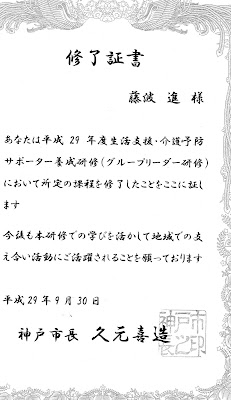 修了証書
藤波 進 様
あなたは平成 29 年度生活支援・介護予防
サポーター養成研修(グループリーダー研修)
において所定の課程を修了したことをここに証し
ます
今後も本研修での学びを活かして地域での支
え合い活動にご活躍されることを願っております
平成 29 年 9 月 30 日
神戸市長 久元喜造
神戸市長之印